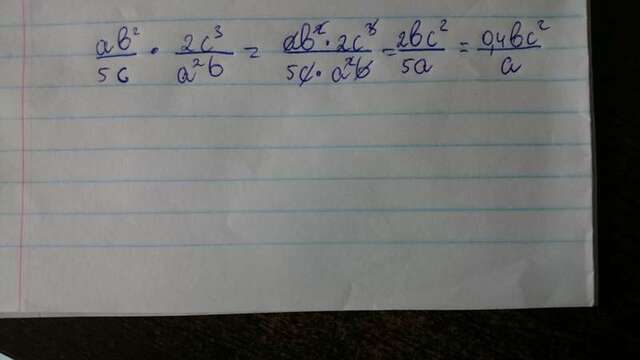 ab²/5c · 2c³/a²b = ab² · 2c³/5c · a²b = 2bc²/5a = 0,4bc²/a